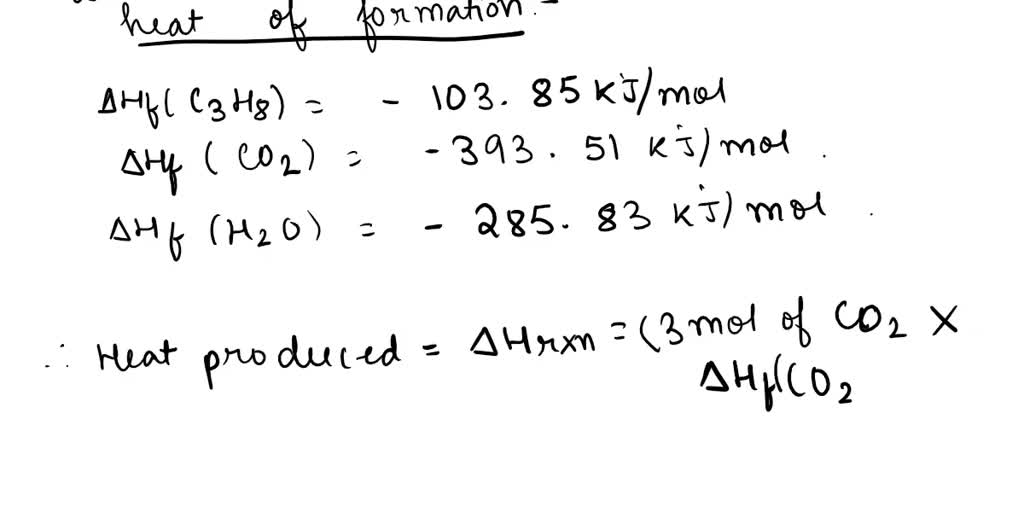 heat of formation.-
ΔHf(C3H8) = - 103.85 KJ/mol
ΔHf (CO2) = -393.51 KJ/mol.
ΔHf (H2O) = - 285.83 KJ/mol.
∴ Heat produced = ΔHrxn = (3 mol of CO2 ×
ΔHf(CO2